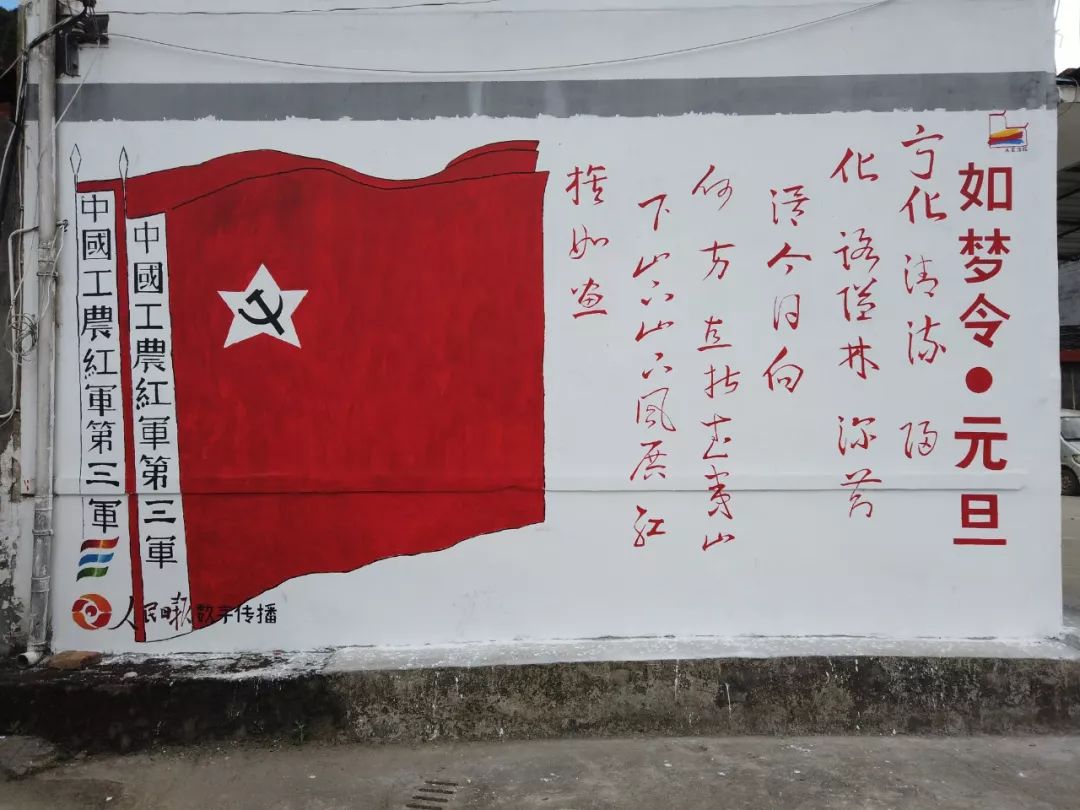 如梦令•元旦
宁化 清流 归
化 路隘林 深苔
滑今日向
何方 直指武夷山
下山下山下风展红
旗如画
中國工農紅軍第三軍
中國工農紅軍第三軍
人民日报数字传播